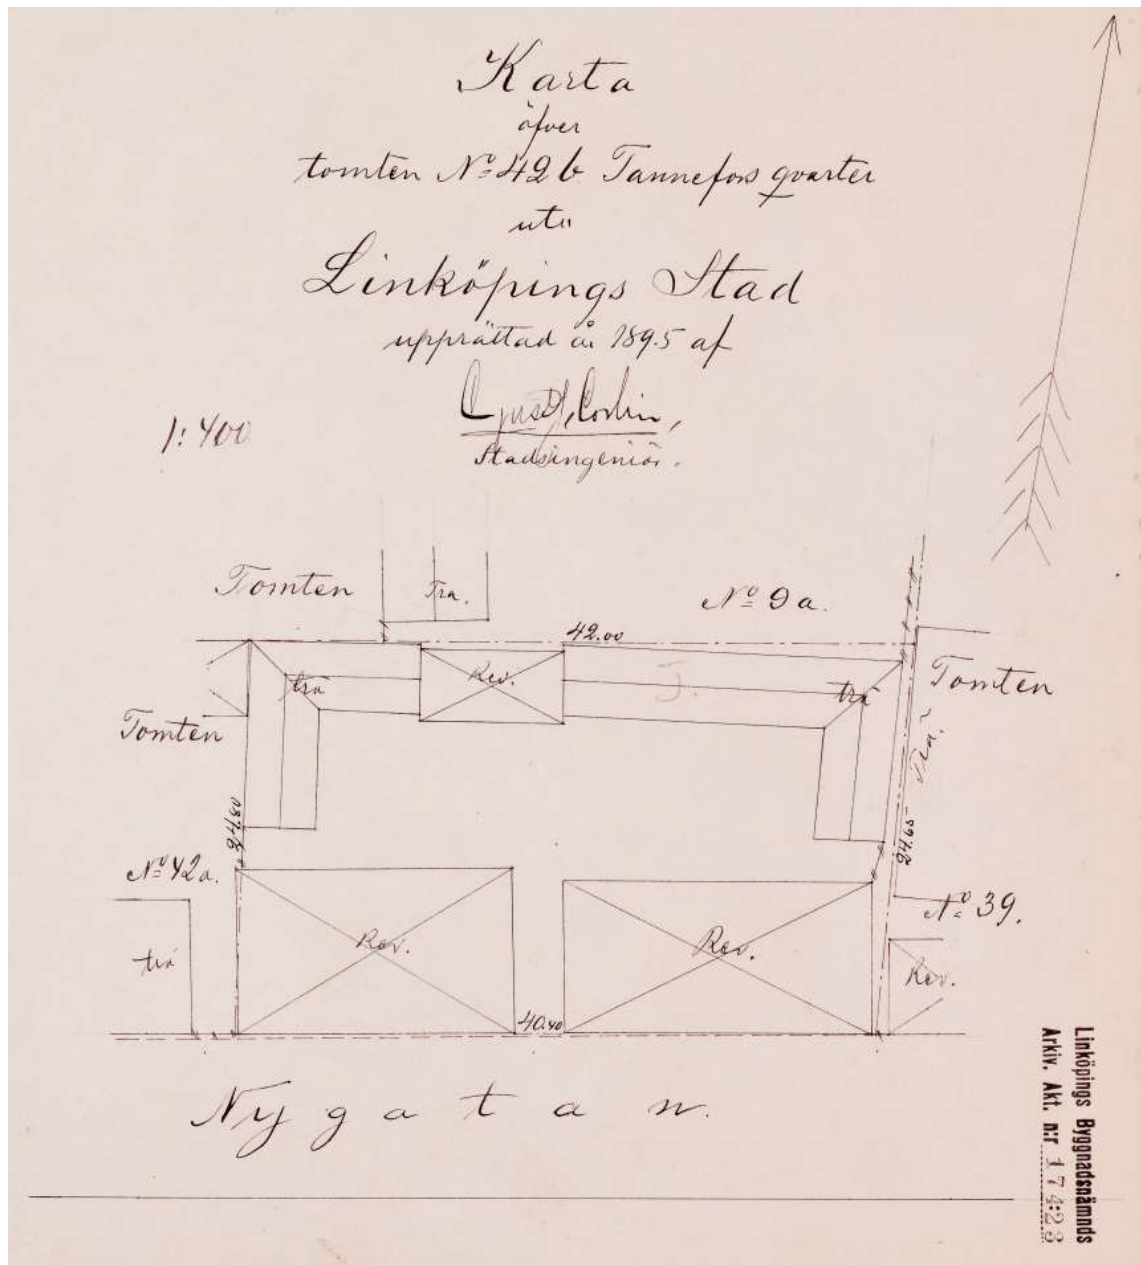 Karta
öfver
tomten No 42 b Tannefors qvarter
uti
Linköpings Stad
upprättad år 1895 af
Stadsingeniör.
1:400
Tomten
Trä.
No 9 a.
42.00
trä
Rev.
trä
Tomten
Tomten
Trä.
24.80
24.68
No 42 a.
No 39.
trä
Rev.
Rev.
Rev.
40.40
Nygatan.
Linköpings Byggnadsnämnds
Arkiv. Akt. n:r 174:23